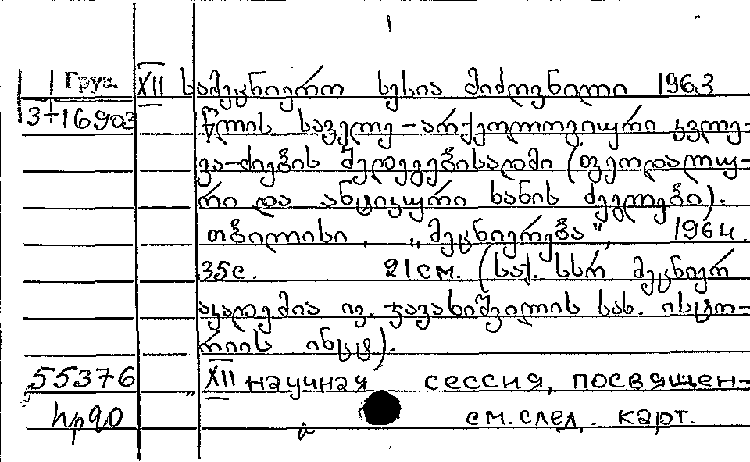 1
Груз. XII სამეცნიერო სესია მიძღვნილი 1963
3+16903 წლის საველე-არქეოლოგიური კვლე-
ვა-ძიების შედეგებისადმი (ფეოდალუ-
რი და ანტიკური ხანის ძეგლები).
თბილისი, „მეცნიერება", 1964.
35с. 21см. (საქ. სსრ მეცნიერ
აკადემია ივ. ჯავახიშვილის სახ. ისტო-
რიის ინსტ).
55376 XII научная сессия, посвящен-
см. след. карт.